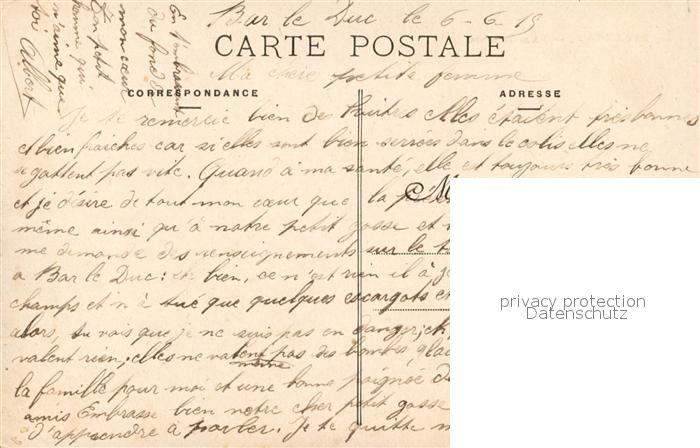 Bar le Duc le 6-6-15
CARTE POSTALE
Ma chère petite femme
CORRESPONDANCE
ADRESSE
Je te remercie bien des huitres elles étaient très bonnes
et bien fraiches car si elles sont bien serrées dans le colis elles ne
se gattent pas vite. Quand à ma santé, elle est toujours très bonne
et je désire de tout mon cœur que la
même ainsi qu'à notre petit gosse et
me demande des renseignements sur le
a Bar le Duc: eh bien, ce n'est rien il à
champs et n'à tué que quelques escargots et
alors, tu vois que je ne suis pas en danger,
valent rien; elles ne valent pas des bombes
même
la famille pour moi et une bonne poignée
amis Embrasse bien notre cher petit gosse
d'apprendre à parler. Je te quitte
En t'embrassant
du fond de
mon cœur
Ton petit
homme qui
n'aime que
toi Albert
privacy protection
Datenschutz